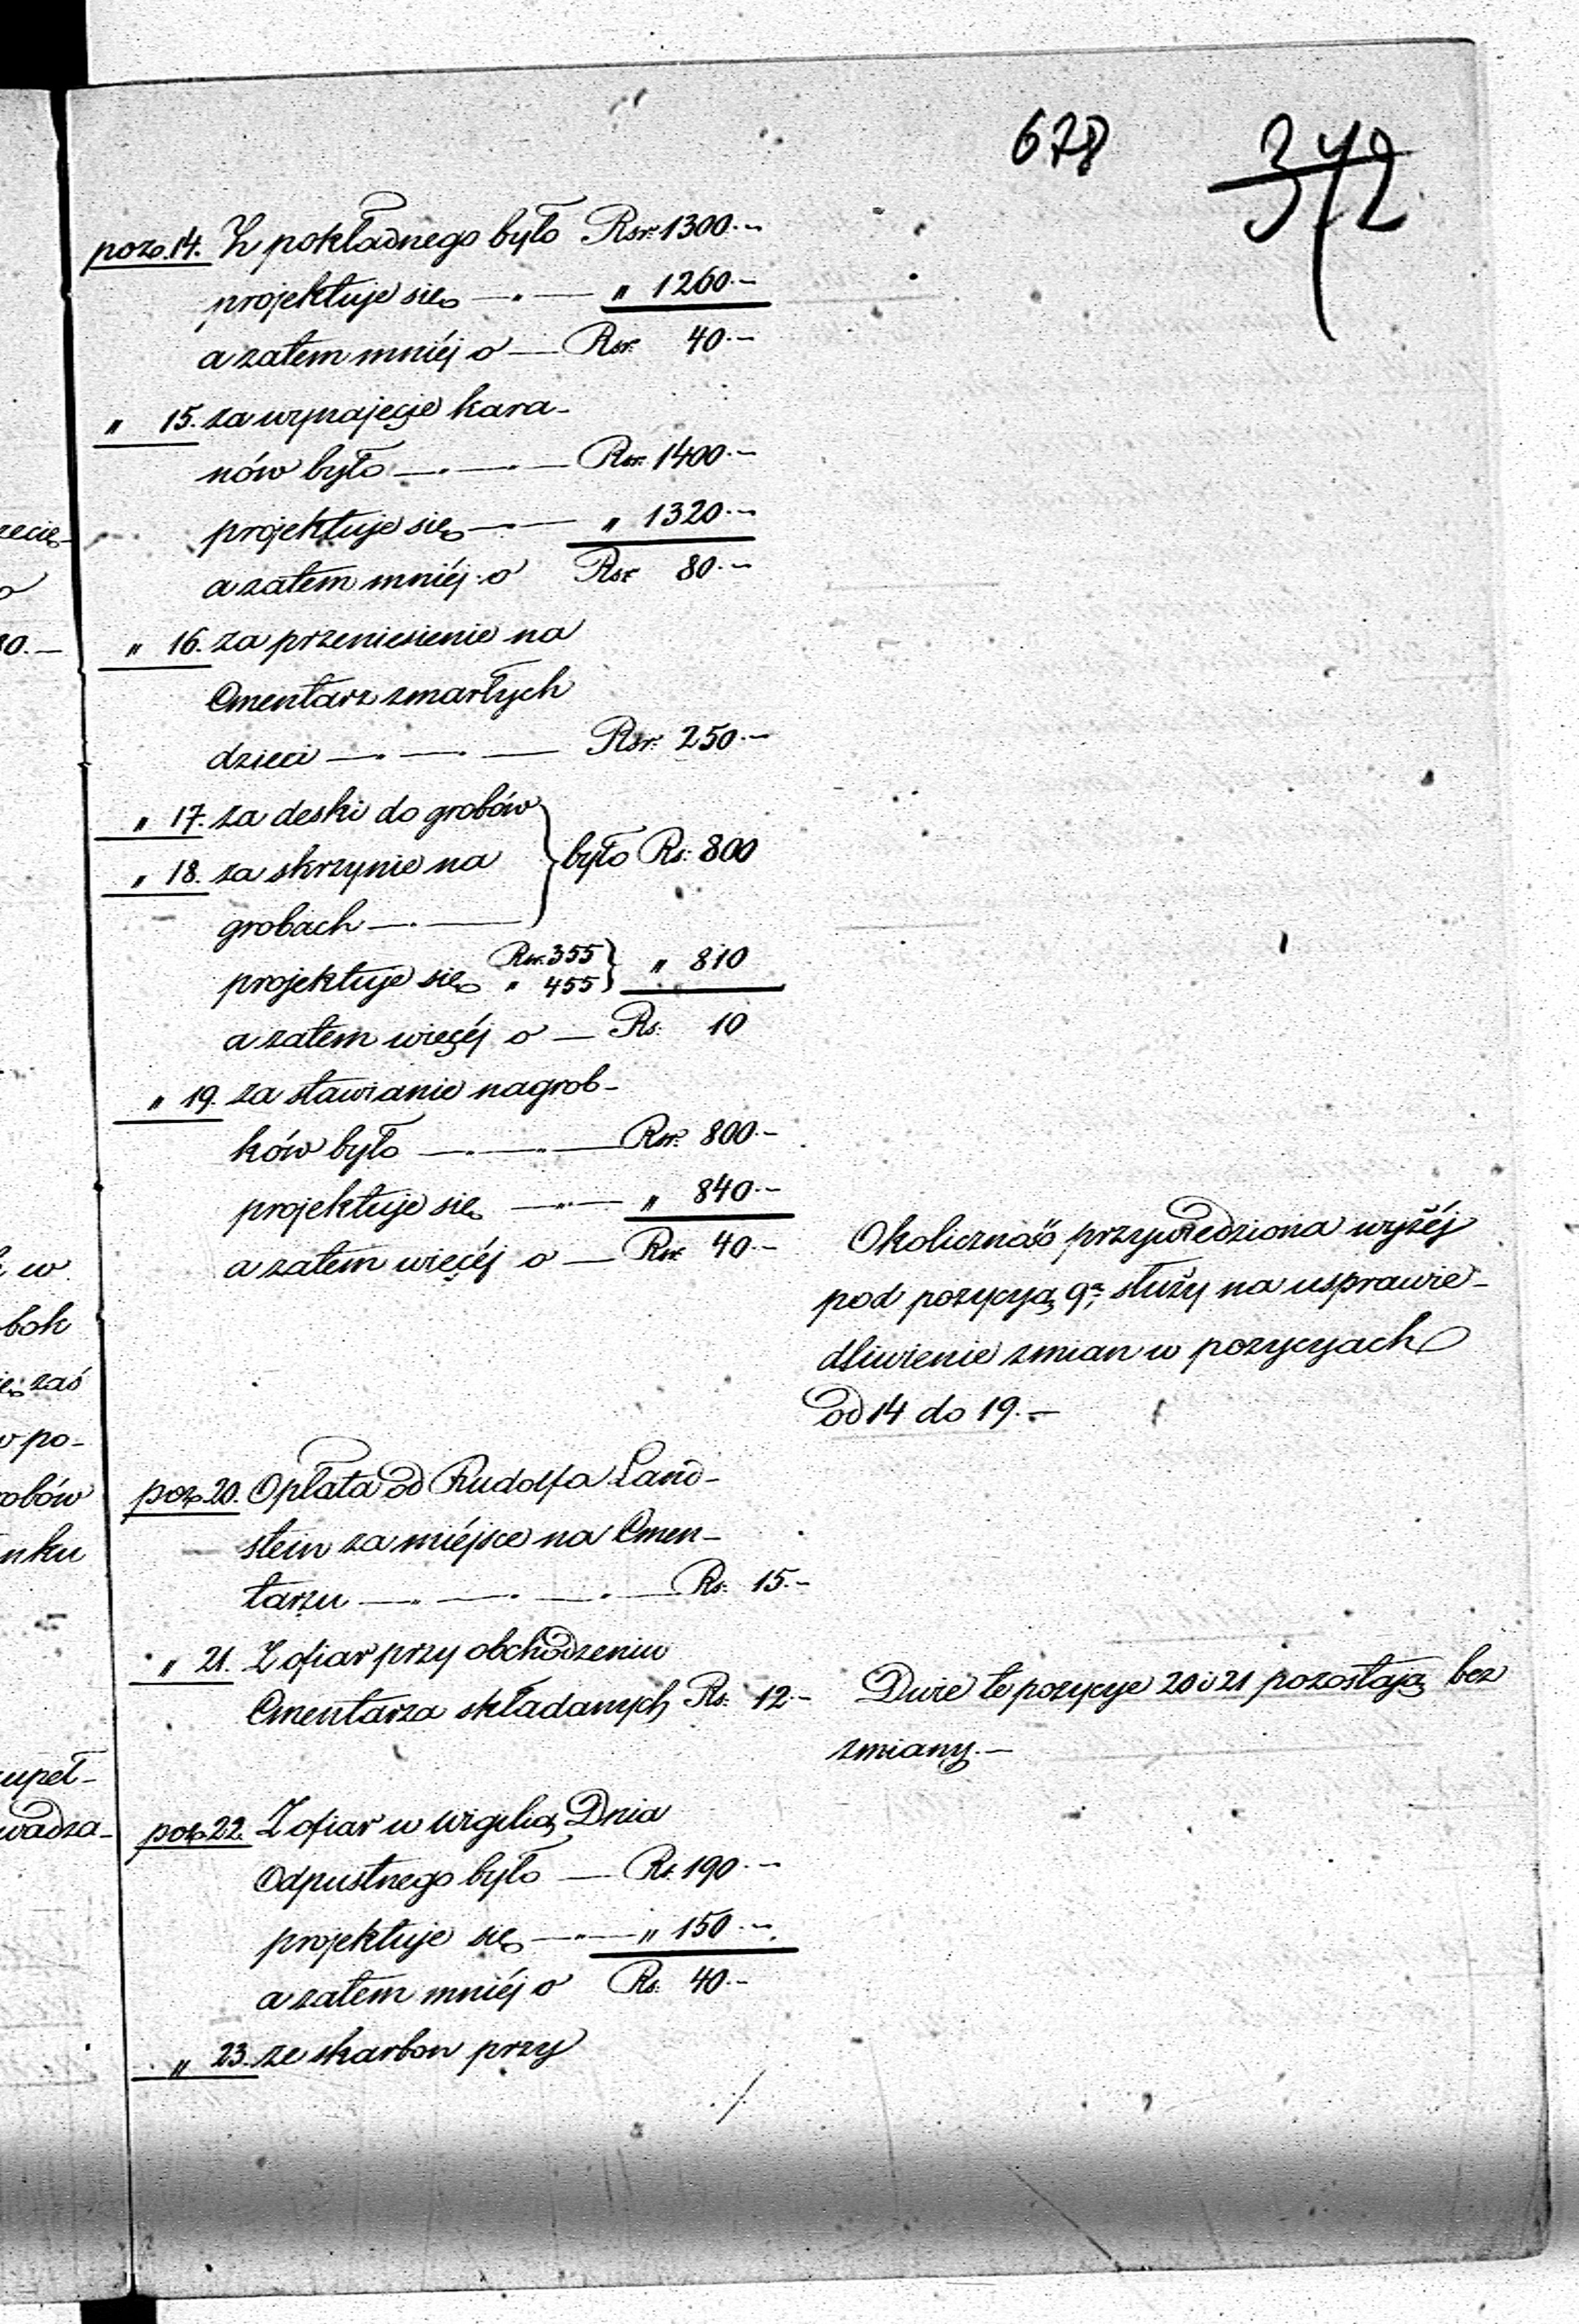 678 372
poz. 14. Z pokładnego było Rsr. 1300.–
projektuje się — " — " 1260.–
a zatem mniéj o — Rsr. 40.–
" 15. za wynajęcie kara-
nów było — " — " — Rsr. 1400.–
projektuje się — " — " 1320.–
a zatem mniéj o Rsr. 80.–
" 16. za przeniesienie na
Cmentarz zmarłych
dzieci — " — " — Rsr. 250.–
" 17. za deski do grobów
" 18. za skrzynie na } było Rs. 800
grobach — " —
projektuje się Rsr. 355 } " 810
" 455
a zatem więcéj o — Rs. 10
" 19. za stawianie nagrob-
ków było — " — " — Rsr. 800.–
projektuje się — " — " 840.–
a zatem więcéj o — Rsr. 40.–
Okoliczność przywiedziona wyżéj
pod pozycyą 9ą, służy na usprawie-
dliwienie zmian w pozycyach
od 14 do 19.–
poz. 20. Opłata od Rudolfa Land-
stein za miéjsce na Cmen-
tarzu — " — " — " — Rs. 15.–
" 21. Z ofiar przy obchodzeniu
Cmentarza składanych Rs. 12.–
Dwie te pozycye 20 i 21 pozostają bez
zmiany.–
poz. 22. Z ofiar w wigilią Dnia
Odpustnego było — Rs. 190.–
projektuje się — " — " 150.–
a zatem mniéj o Rs. 40.–
" 23. ze skarbon przy
./.